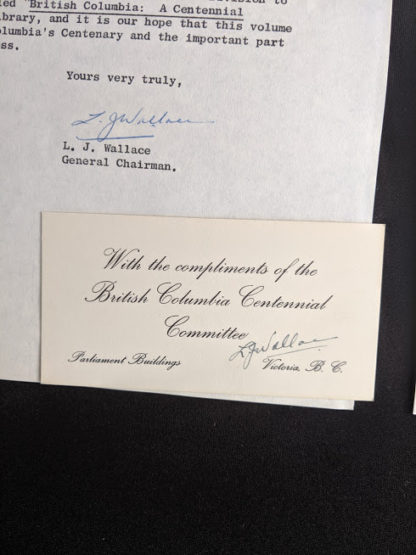 led "British Columbia: A Centennial
ibrary, and it is our hope that this volume
olumbia's Centenary and the important part
ss.
Yours very truly,
L. J. Wallace
L. J. Wallace
General Chairman.
With the compliments of the
British Columbia Centennial
Committee
L. J. Wallace
Parliament Buildings
Victoria, B. C.